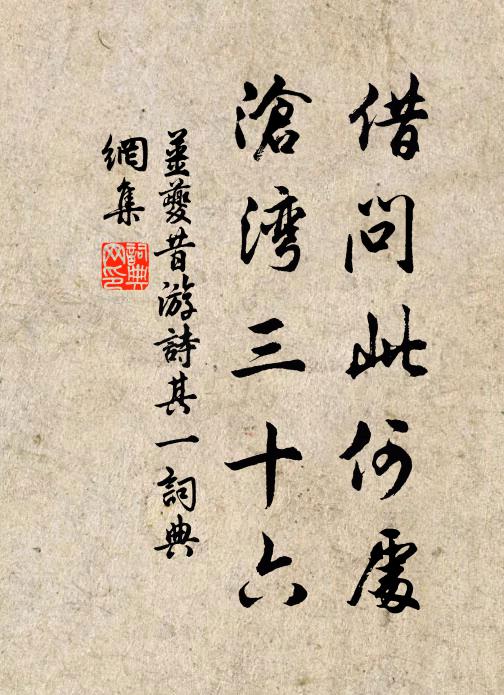 借問此何處
滄湾三十六
姜夔昔游詩其一詞典
網集
詞典网印